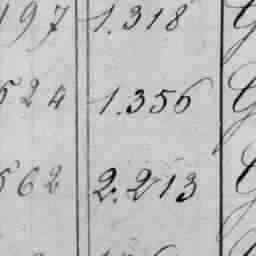 197 1.318
524 1.356
562 2.213